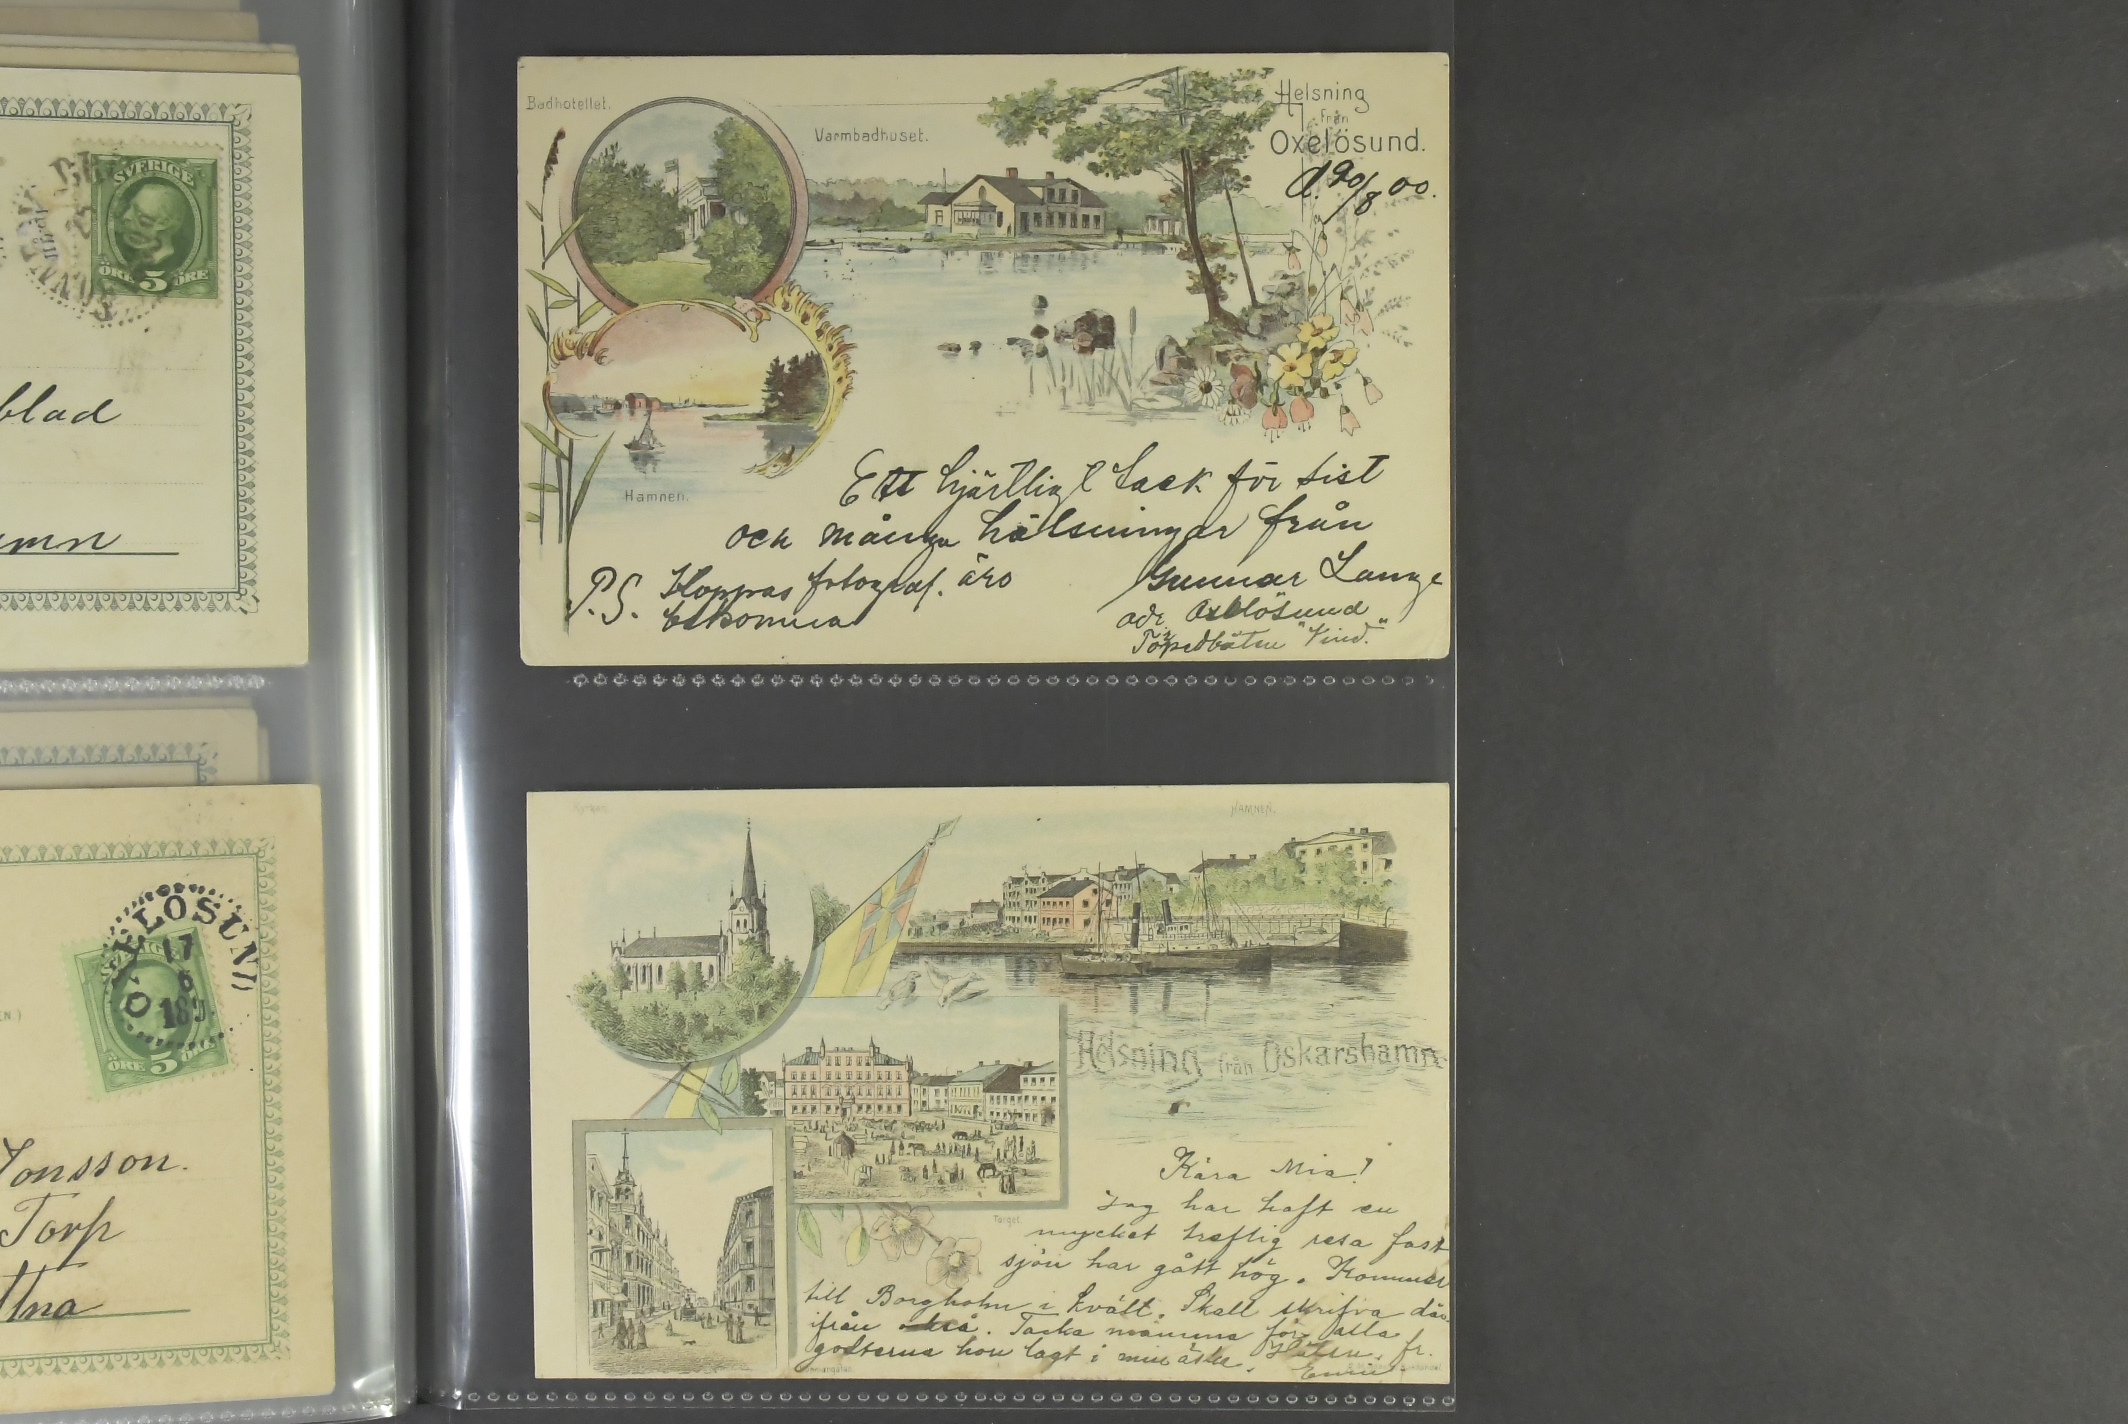 SVERIGE
ÖRE 5 ÖRE
blad
OXELÖSUND
17
6
189
ÖRE 5 ÖRE
Jonsson.
Torp
Badhotellet.
Varmbadhuset.
Helsning
från
Oxelösund.
d. 20/8 00.
Hamnen.
Ett hjärtligt tack för sist
och många hälsningar från
Gunnar Lange
adr Oxelösund
Torpedbåten "Vind."
P.S. Hoppas fotograf. äro
HAMNEN.
Helsning från Oskarshamn
Torget
Kära Mia!
Jag har haft en
mycket treflig resa fast
sjön har gått hög. Kommer
till Borgholm i kväll. Skall skrifva där-
ifrån också. Tacka mamma för alla
godterna hon lagt i min ask. Hälsn. fr.